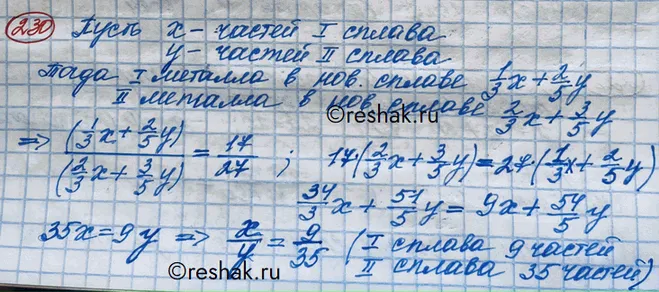 230 Пусть x - частей I сплава
y - частей II сплава
Тогда I металла в нов. сплаве 1/3x + 2/5y
II металла в нов. сплаве 2/3x + 3/5y
©reshak.ru
=> (1/3x + 2/5y)/(2/3x + 3/5y) = 17/27 ; 17·(2/3x + 3/5y) = 27·(1/3x + 2/5y)
34/3x + 51/5y = 9x + 54/5y
35x = 9y => x/y = 9/35 (I сплава 9 частей
II сплава 35 частей)
©reshak.ru